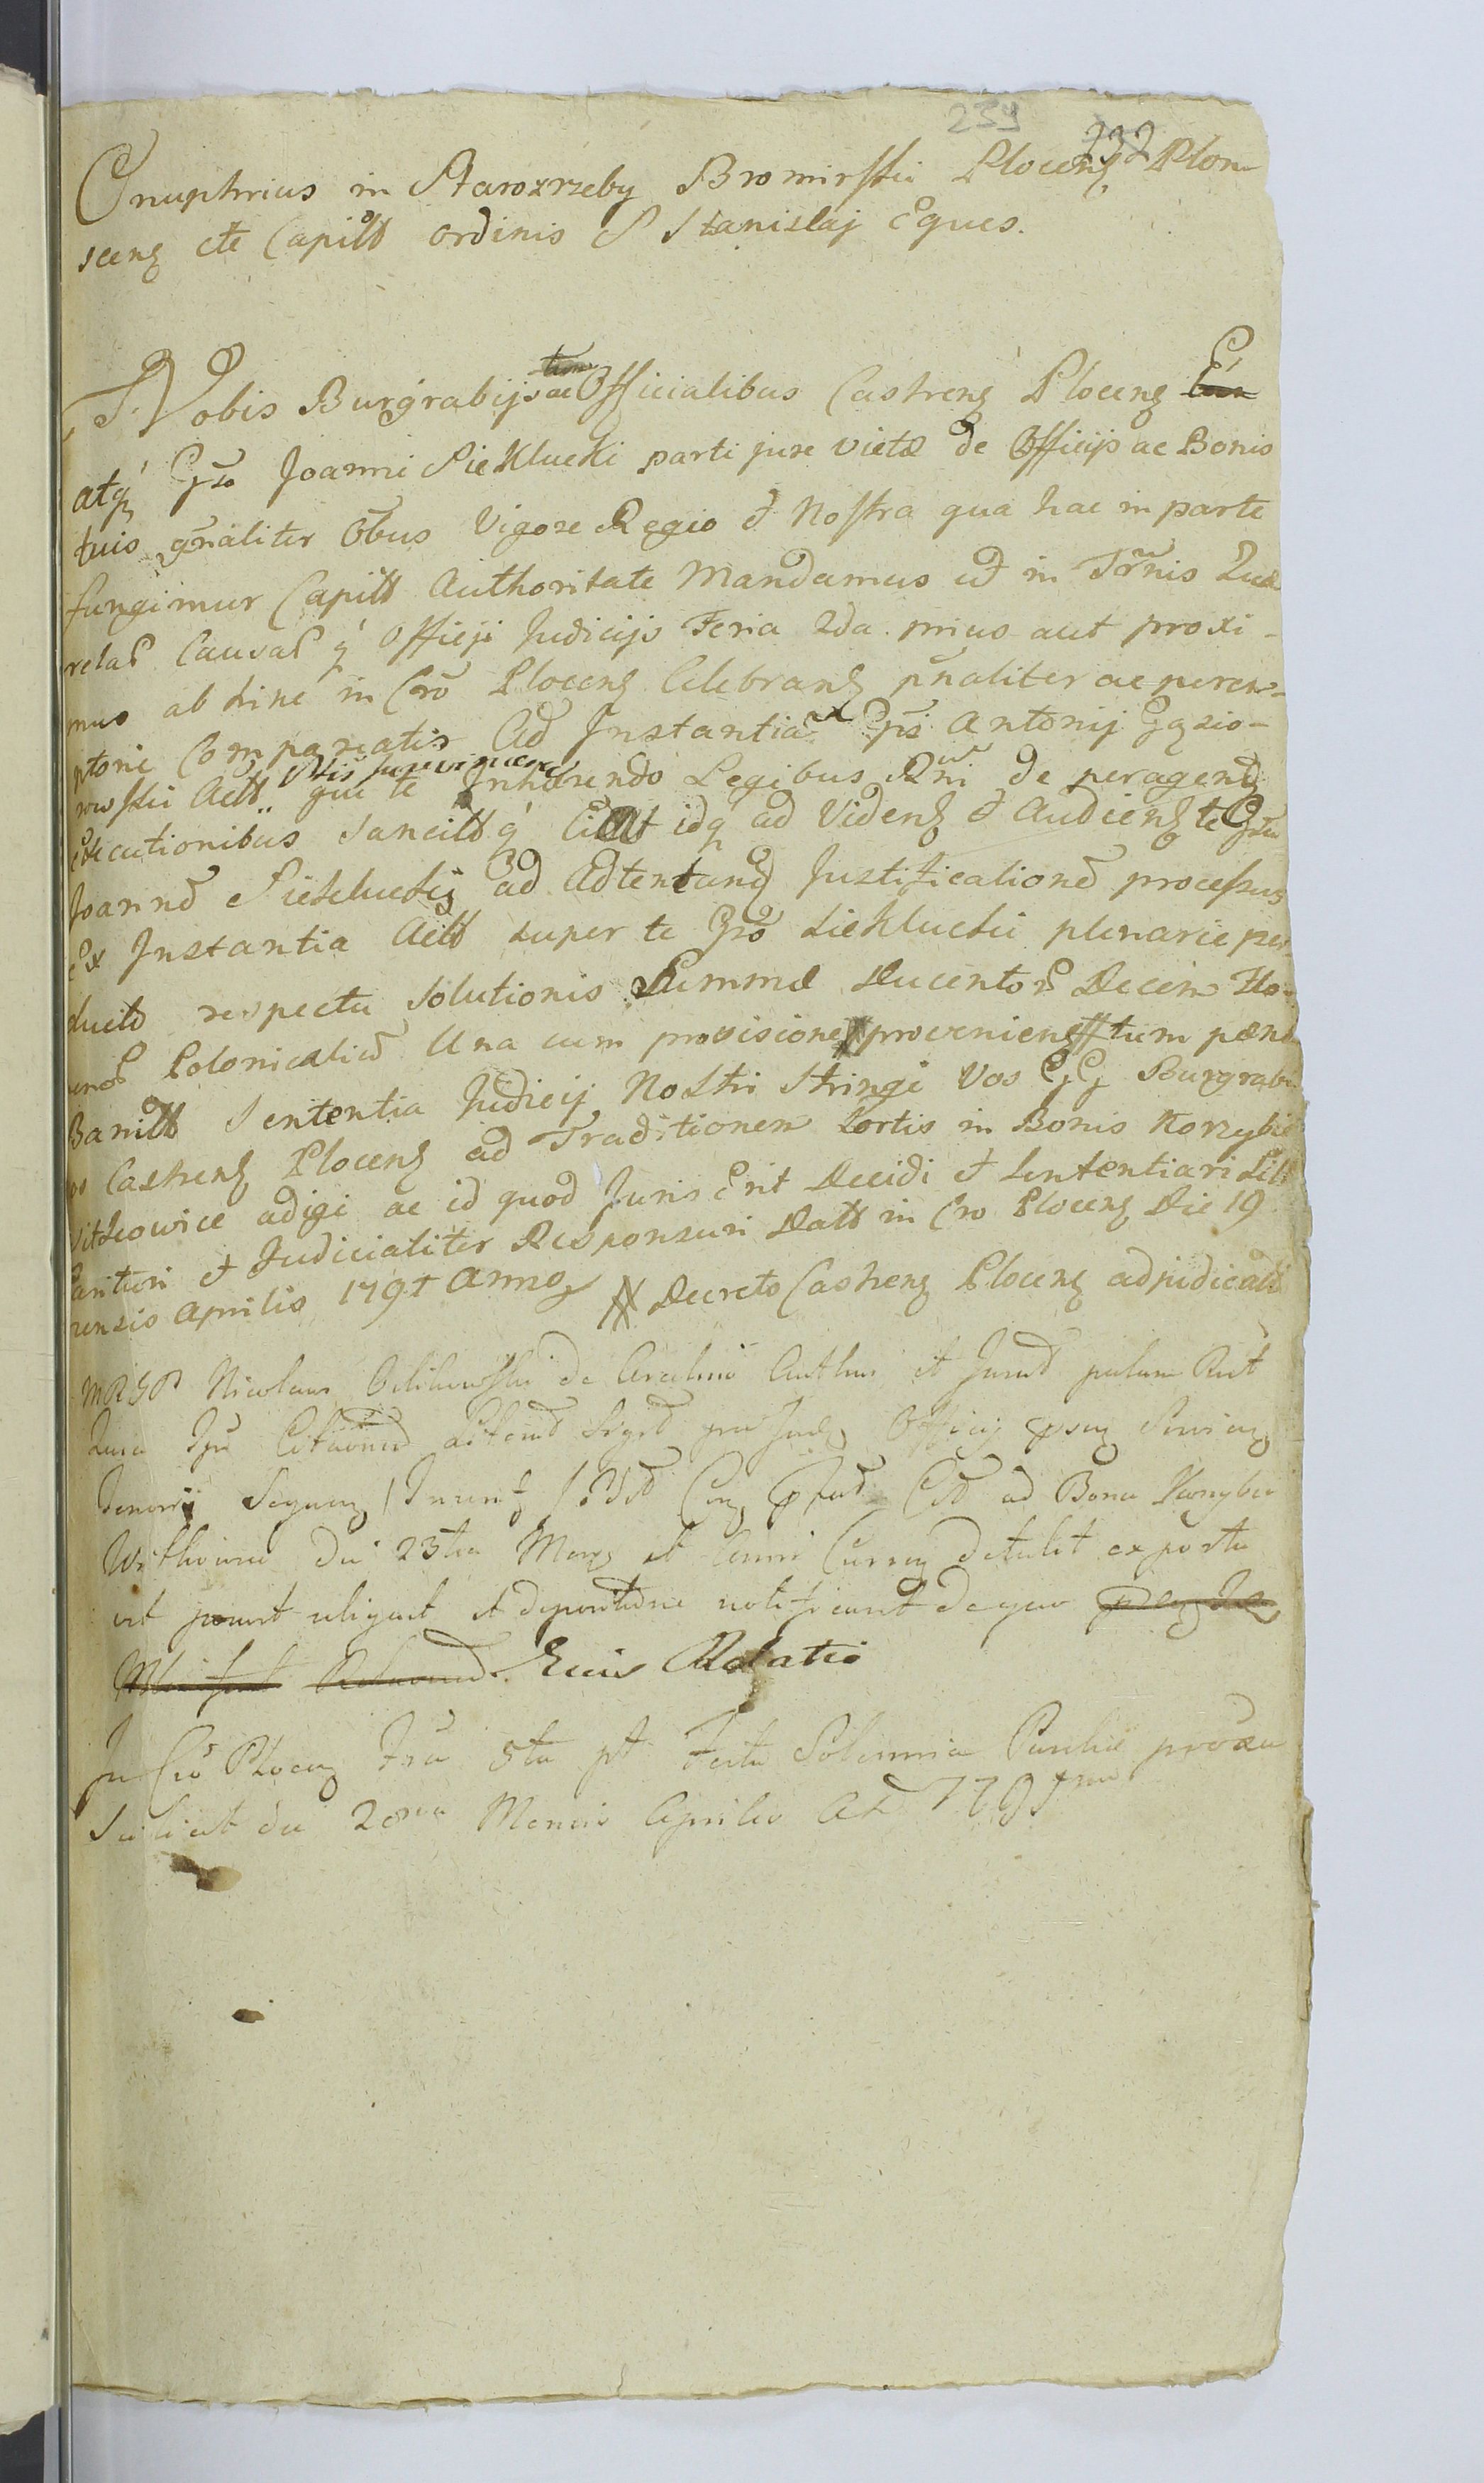 239 232
Onuphrius in Starozrzeby Bromirski Plocens Plon
scens ete Capitt ordinis S Stanislaj Eques.
Vobis Burgrabijs ac Officialibus Castrens Plocens
atq Gso Joanni Sieklucki parti jure victæ de Officijs ac Bonis
tuis gnäliter Obus Vigore Regio et Nostra qua hac in parte
fungimur Capitt Authoritate Mandamus ut in Trnis
relaP CausaP q Officji Judicijs Feria 2da. prius aut proxi-
mus ab hinc in Cro Plocens Celebrans pnaliter ac perem-
ptorie Compareatis Ad Instantia Gsi Antonij Gąsio-
rowski Actt Ptis jure vincere qui te Inhærendo Legibus Rni de peragend
Executionibus sancitt q Citat idq ad Videns et Audiens te Gsu
Joannē Sieklucki ad Adtentand Justificationē processus
Ex Instantia Actt super te Gso Sieklucki plenarie per
ducto respectu solutionis Summæ Ducentor Decem Flo-
renoP Polonicaliū Una cum provisione proveniens tum pæna
Banitt Sententia Judicij Nostri Stringi Vos GG Burgrabi
os Castrens Plocens ad Traditionem Sortis in Bonis Korzybie
Witkowice adigi ac id quod Juris Erit Decidi et Sententiari Citt
Parituri et Judicialiter Responsuri Datt in Cro Plocens Die 19
rensis Aprilis 1791 Anno Decreto Castrens Plocens adjudicatt
MRGP Nicolaus de Authen et Jurat palam Rit
Quia Citationē Officij
Tenoris Sequens ad Bona Korzybie
Witkowice die 23tia Mens et Anni Currens detulit exposu
it posuit reliquit et de positione notificavit deque
Eius Relatio
In Cro Plocens Fria 5ta pt Festa Solennia Paschæ proxa
Scilicet die 28va Mensis Aprilis AD 1791mo